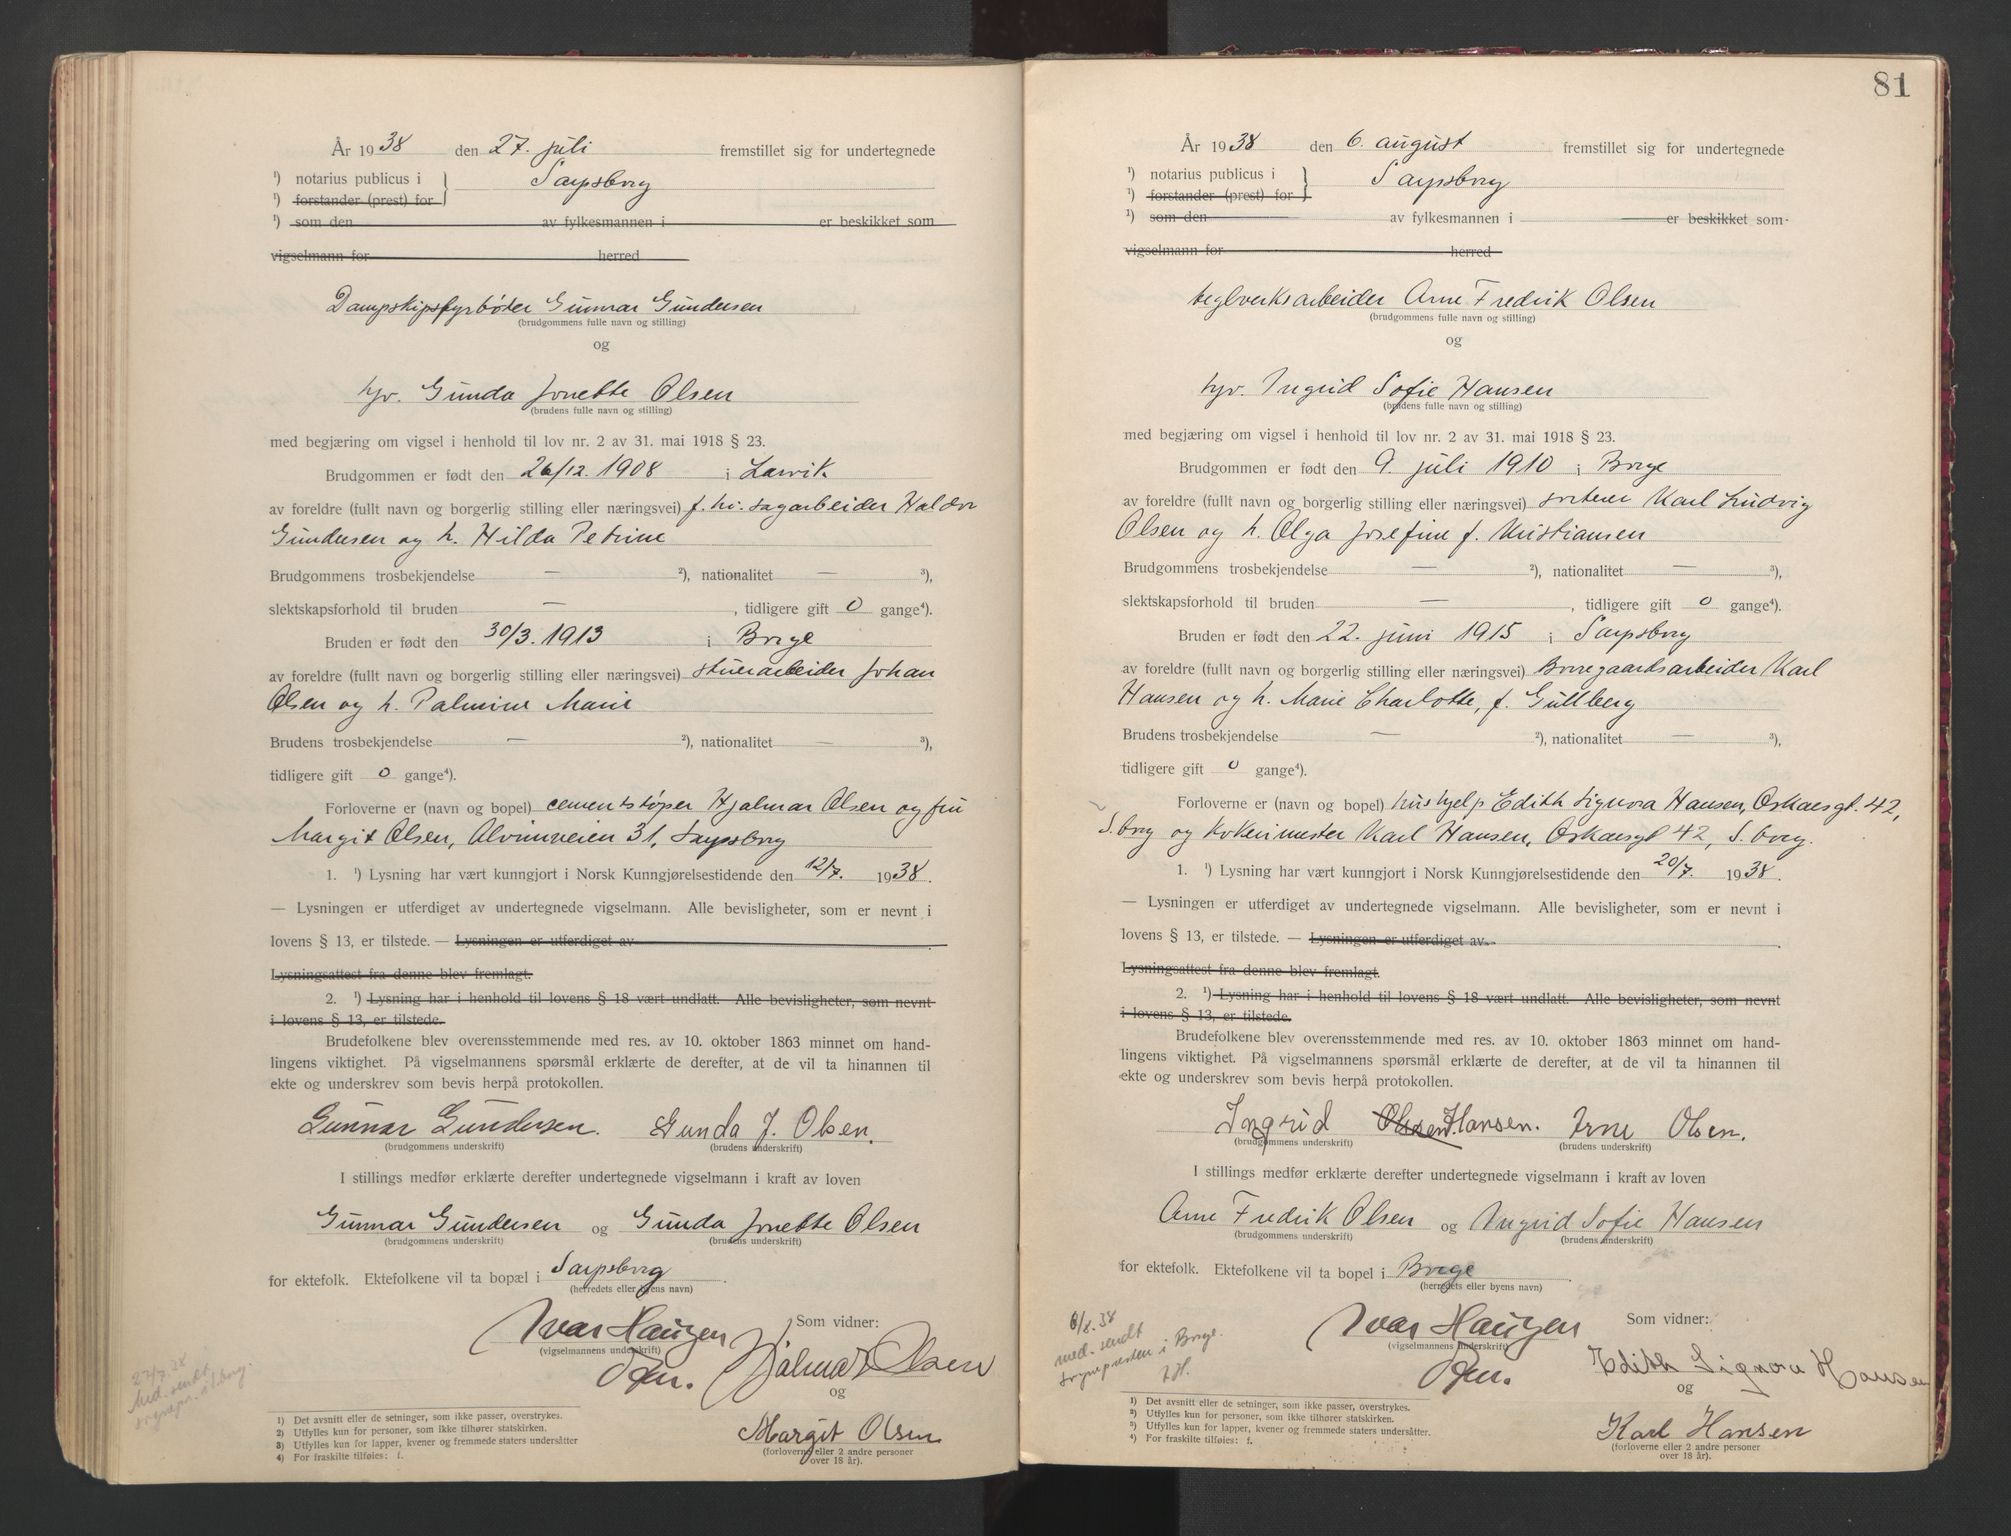 År 1938 den 27. juli fremstillet sig for undertegnede
¹) notarius publicus i } Sarpsborg
¹) forstander (prest) for
¹) som den av fylkesmannen i er beskikket som
vigselmann for herred
Dampskipsfyrbøter Gunnar Gundersen
(brudgommens fulle navn og stilling)
og
hjv. Gunda Jonette Olsen
(brudens fulle navn og stilling)
med begjæring om vigsel i henhold til lov nr. 2 av 31. mai 1918 § 23.
Brudgommen er født den 26/12. 1908 i Larvik
av foreldre (fullt navn og borgerlig stilling eller næringsvei) f. hv. sagarbeider Haldor
Gundersen og h. Hilda Petrine
Brudgommens trosbekjendelse — ²), nationalitet — ³),
slektskapsforhold til bruden — , tidligere gift 0 gange⁴).
Bruden er født den 30/3. 1913 i Borge
av foreldre (fullt navn og borgerlig stilling eller næringsvei) stuerarbeider Johan
Olsen og h. Palmine Marie
Brudens trosbekjendelse — ²), nationalitet — ³),
tidligere gift 0 gange⁴).
Forloverne er (navn og bopel) cementstøper Hjalmar Olsen og fru
Margit Olsen, Alvimveien 31, Sarpsborg
1. ¹) Lysning har vært kunngjort i Norsk Kunngjørelsestidende den 12/7. 1938.
— Lysningen er utferdiget av undertegnede vigselmann. Alle bevisligheter, som er nevnt i
lovens § 13, er tilstede. — Lysningen er utferdiget av
Lysningsattest fra denne blev fremlagt.
2. ¹) Lysning har i henhold til lovens § 18 vært undlatt. Alle bevisligheter, som nevnt
i lovens § 13, er tilstede.
Brudefolkene blev overensstemmende med res. av 10. oktober 1863 minnet om hand-
lingens viktighet. På vigselmannens spørsmål erklærte de derefter, at de vil ta hinannen til
ekte og underskrev som bevis herpå protokollen.
Gunnar Gundersen. Gunda J. Olsen.
(brudgommens underskrift) (brudens underskrift)
I stillings medfør erklærte derefter undertegnede vigselmann i kraft av loven
Gunnar Gundersen og Gunda Jonette Olsen
(brudgommens underskrift) (brudens underskrift)
for ektefolk. Ektefolkene vil ta bopæl i Sarpsborg.
(herredets eller byens navn)
Ivar Haugen Som vidner:
(vigselmannens underskrift)
Hjalmar Olsen
og
27/7.38
Med. sendt
sognepr. i S.borg.
Margit Olsen
(forloverne eller 2 andre personer
over 18 år).
1) Det avsnitt eller de setninger, som ikke passer, overstrykes.
2) Utfylles kun for personer, som ikke tilhører statskirken.
3) Utfylles kun for lapper, kvener og fremmede staters undersåtter
4) For fraskilte tilføies: f.
81
År 1938 den 6. august fremstillet sig for undertegnede
¹) notarius publicus i } Sarpsborg
¹) forstander (prest) for
¹) som den av fylkesmannen i er beskikket som
vigselmann for herred
teglverksarbeider Arne Fredrik Olsen
(brudgommens fulle navn og stilling)
og
hjv. Ingrid Sofie Hansen
(brudens fulle navn og stilling)
med begjæring om vigsel i henhold til lov nr. 2 av 31. mai 1918 § 23.
Brudgommen er født den 9. juli 1910 i Borge
av foreldre (fullt navn og borgerlig stilling eller næringsvei) sorterer Karl Ludvig
Olsen og h. Olga Josefine f. Kristiansen
Brudgommens trosbekjendelse — ²), nationalitet — ³),
slektskapsforhold til bruden — , tidligere gift 0 gange⁴).
Bruden er født den 22. juni 1915 i Sarpsborg
av foreldre (fullt navn og borgerlig stilling eller næringsvei) Borregaardsarbeider Karl
Hansen og h. Marie Charlotte, f. Gullberg
Brudens trosbekjendelse — ²), nationalitet — ³),
tidligere gift 0 gange⁴).
Forloverne er (navn og bopel) hushjelp Edith Signora Hansen, Oskarsgt. 42,
S.borg og kokerimester Karl Hansen, Oskarsgt 42, S.borg.
1. ¹) Lysning har vært kunngjort i Norsk Kunngjørelsestidende den 20/7. 1938.
— Lysningen er utferdiget av undertegnede vigselmann. Alle bevisligheter, som er nevnt i
lovens § 13, er tilstede. — Lysningen er utferdiget av
Lysningsattest fra denne blev fremlagt.
2. ¹) Lysning har i henhold til lovens § 18 vært undlatt. Alle bevisligheter, som nevnt
i lovens § 13, er tilstede.
Brudefolkene blev overensstemmende med res. av 10. oktober 1863 minnet om hand-
lingens viktighet. På vigselmannens spørsmål erklærte de derefter, at de vil ta hinannen til
ekte og underskrev som bevis herpå protokollen.
Ingrid Olsen Hansen. Arne Olsen.
(brudgommens underskrift) (brudens underskrift)
I stillings medfør erklærte derefter undertegnede vigselmann i kraft av loven
Arne Fredrik Olsen og Ingrid Sofie Hansen
(brudgommens underskrift) (brudens underskrift)
for ektefolk. Ektefolkene vil ta bopel i Borge.
(herredets eller byens navn)
Ivar Haugen Som vidner:
(vigselmannens underskrift)
6/8.38
med. sendt
sognepresten i Borge.
I.H.
Edith Signora Hansen
og
Karl Hansen
(forloverne eller 2 andre personer
over 18 år).
1) Det avsnitt eller de setninger, som ikke passer, overstrykes.
2) Utfylles kun for personer, som ikke tilhører statskirken.
3) Utfylles kun for lapper, kvener og fremmede staters undersåtter.
4) For fraskilte tilføies: f.